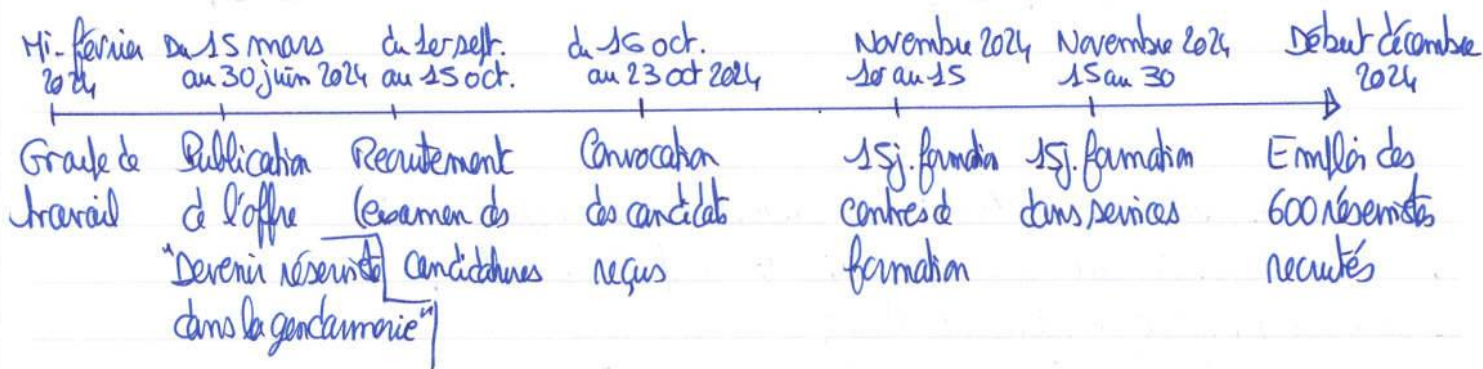 Mi-février
2024
Du 15 mars
au 30 juin 2024
du 1er sept.
au 15 oct.
du 16 oct.
au 23 oct 2024
Novembre 2024
1er au 15
Novembre 2024
15 au 30
Début décembre
2024
Groupe de
travail
Publication
de l'offre
"Devenir réserviste
dans la gendarmerie"
Recrutement
(examen des
candidatures
Convocation
des candidats
reçus
15j. formation
centres de
formation
15j. formation
dans services
Emploi des
600 réservistes
recrutés